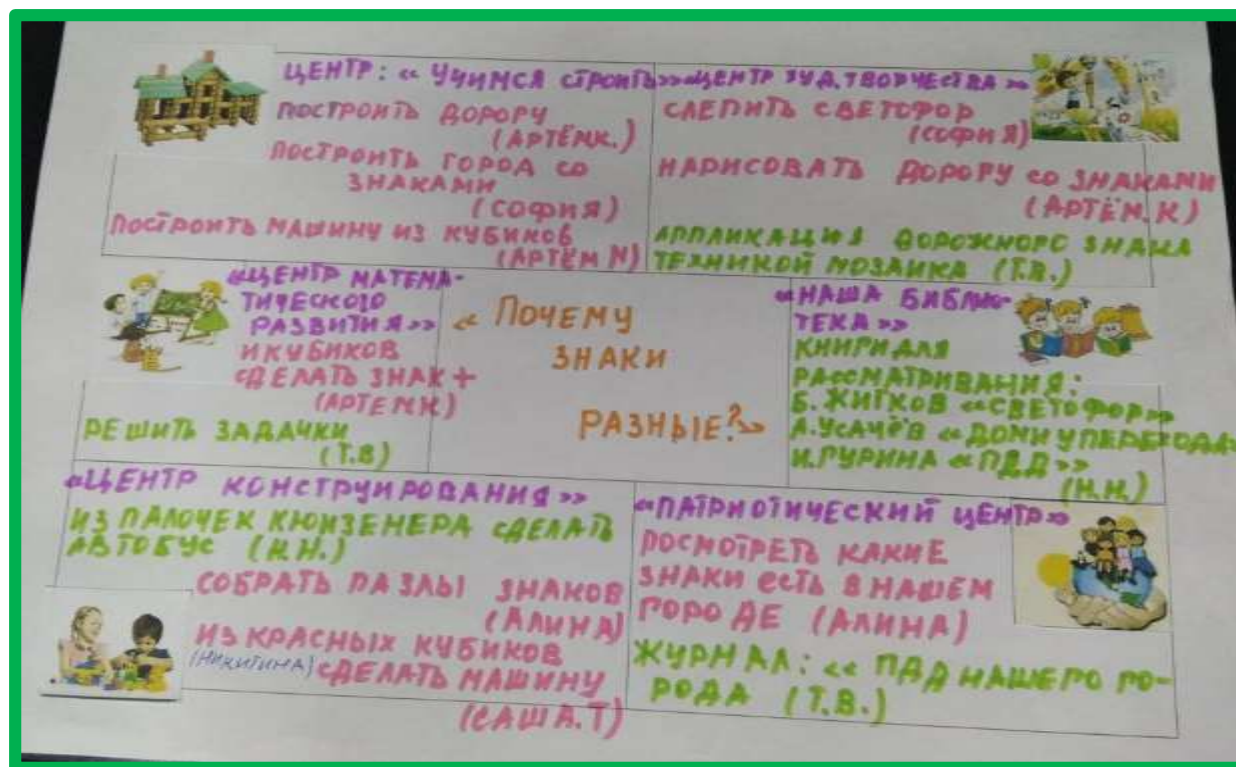 ЦЕНТР: «УЧИМСЯ СТРОИТЬ»
ПОСТРОИТЬ ДОРОРУ
(АРТЁМК.)
ПОСТРОИТЬ ГОРОД СО
ЗНАКАМИ
(СОФИЯ)
ПОСТРОИТЬ МАШИНУ ИЗ КУБИКОВ
(АРТЁМ М)
«ЦЕНТР ХУД. ТВОРЧЕСТВА»
СЛЕПИТЬ СВЕТОФОР
(СОФИЯ)
НАРИСОВАТЬ ДОРОГУ СО ЗНАКАМИ
(АРТЁМ.К)
АППЛИКАЦИЯ ДОРОЖНОГО ЗНАКА
ТЕХНИКОЙ МОЗАИКА (Т.В.)
«ЦЕНТР МАТЕМА-
ТИЧЕСКОГО
РАЗВИТИЯ»
ИКУБИКОВ
СДЕЛАТЬ ЗНАК +
(АРТЕМК)
РЕШИТЬ ЗАДАЧКИ
(Т.В)
«ПОЧЕМУ
ЗНАКИ
РАЗНЫЕ?»
«НАША БИБЛИО-
ТЕКА»
КНИГИ ДЛЯ
РАССМАТРИВАНИЯ:
Б. ЖИТКОВ «СВЕТОФОР»
А.УСАЧЁВ «ДОМИ УПЕРЕХОДА»
И.ГУРИНА «ПДД»
(Н.Н.)
«ЦЕНТР КОНСТРУИРОВАНИЯ»
ИЗ ПАЛОЧЕК КЮИЗЕНЕРА СДЕЛАТЬ
АВТОБУС (Н.Н.)
СОБРАТЬ ПАЗЛЫ ЗНАКОВ
(АЛИНА)
ИЗ КРАСНЫХ КУБИКОВ
(НИКИТИНА) СДЕЛАТЬ МАШИНУ
(САША.Т)
«ПАТРИОТИЧЕСКИЙ ЦЕНТР»
ПОСМОТРЕТЬ КАКИЕ
ЗНАКИ ЕСТЬ В НАШЕМ
ГОРОДЕ (АЛИНА)
ЖУРНАЛ: «ПДД НАШЕГО ГО-
РОДА (Т.В.)